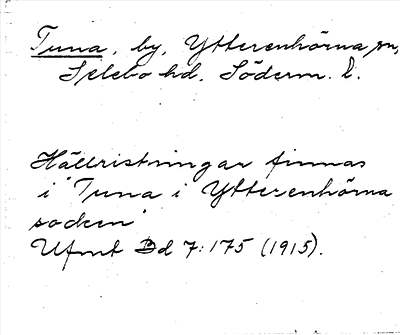 Tuna, by, Ytterenhörna sn,
Selebo hd, Söderm. l.
Hällristningar finnas
i "Tuna i Ytterenhörna
socken"
Ufmt Bd 7:175 (1915).